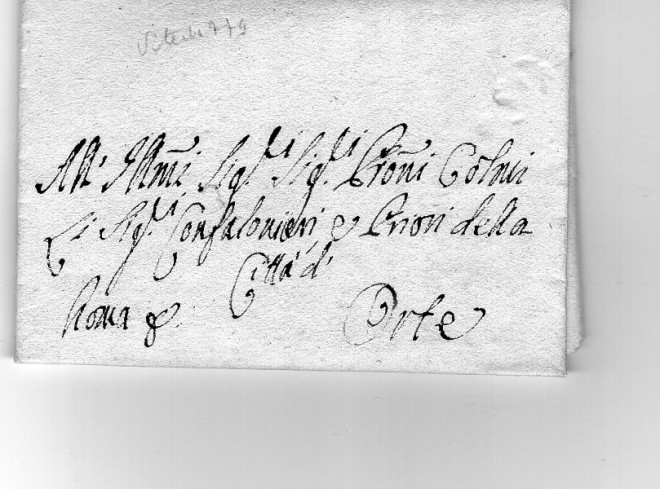 Viterbo 779
All' Illmi Sig.ri Sig.ri Proñi Colmi
Li Sig.ri Confalonieri, e Priori della
Città d'
Roma Orte